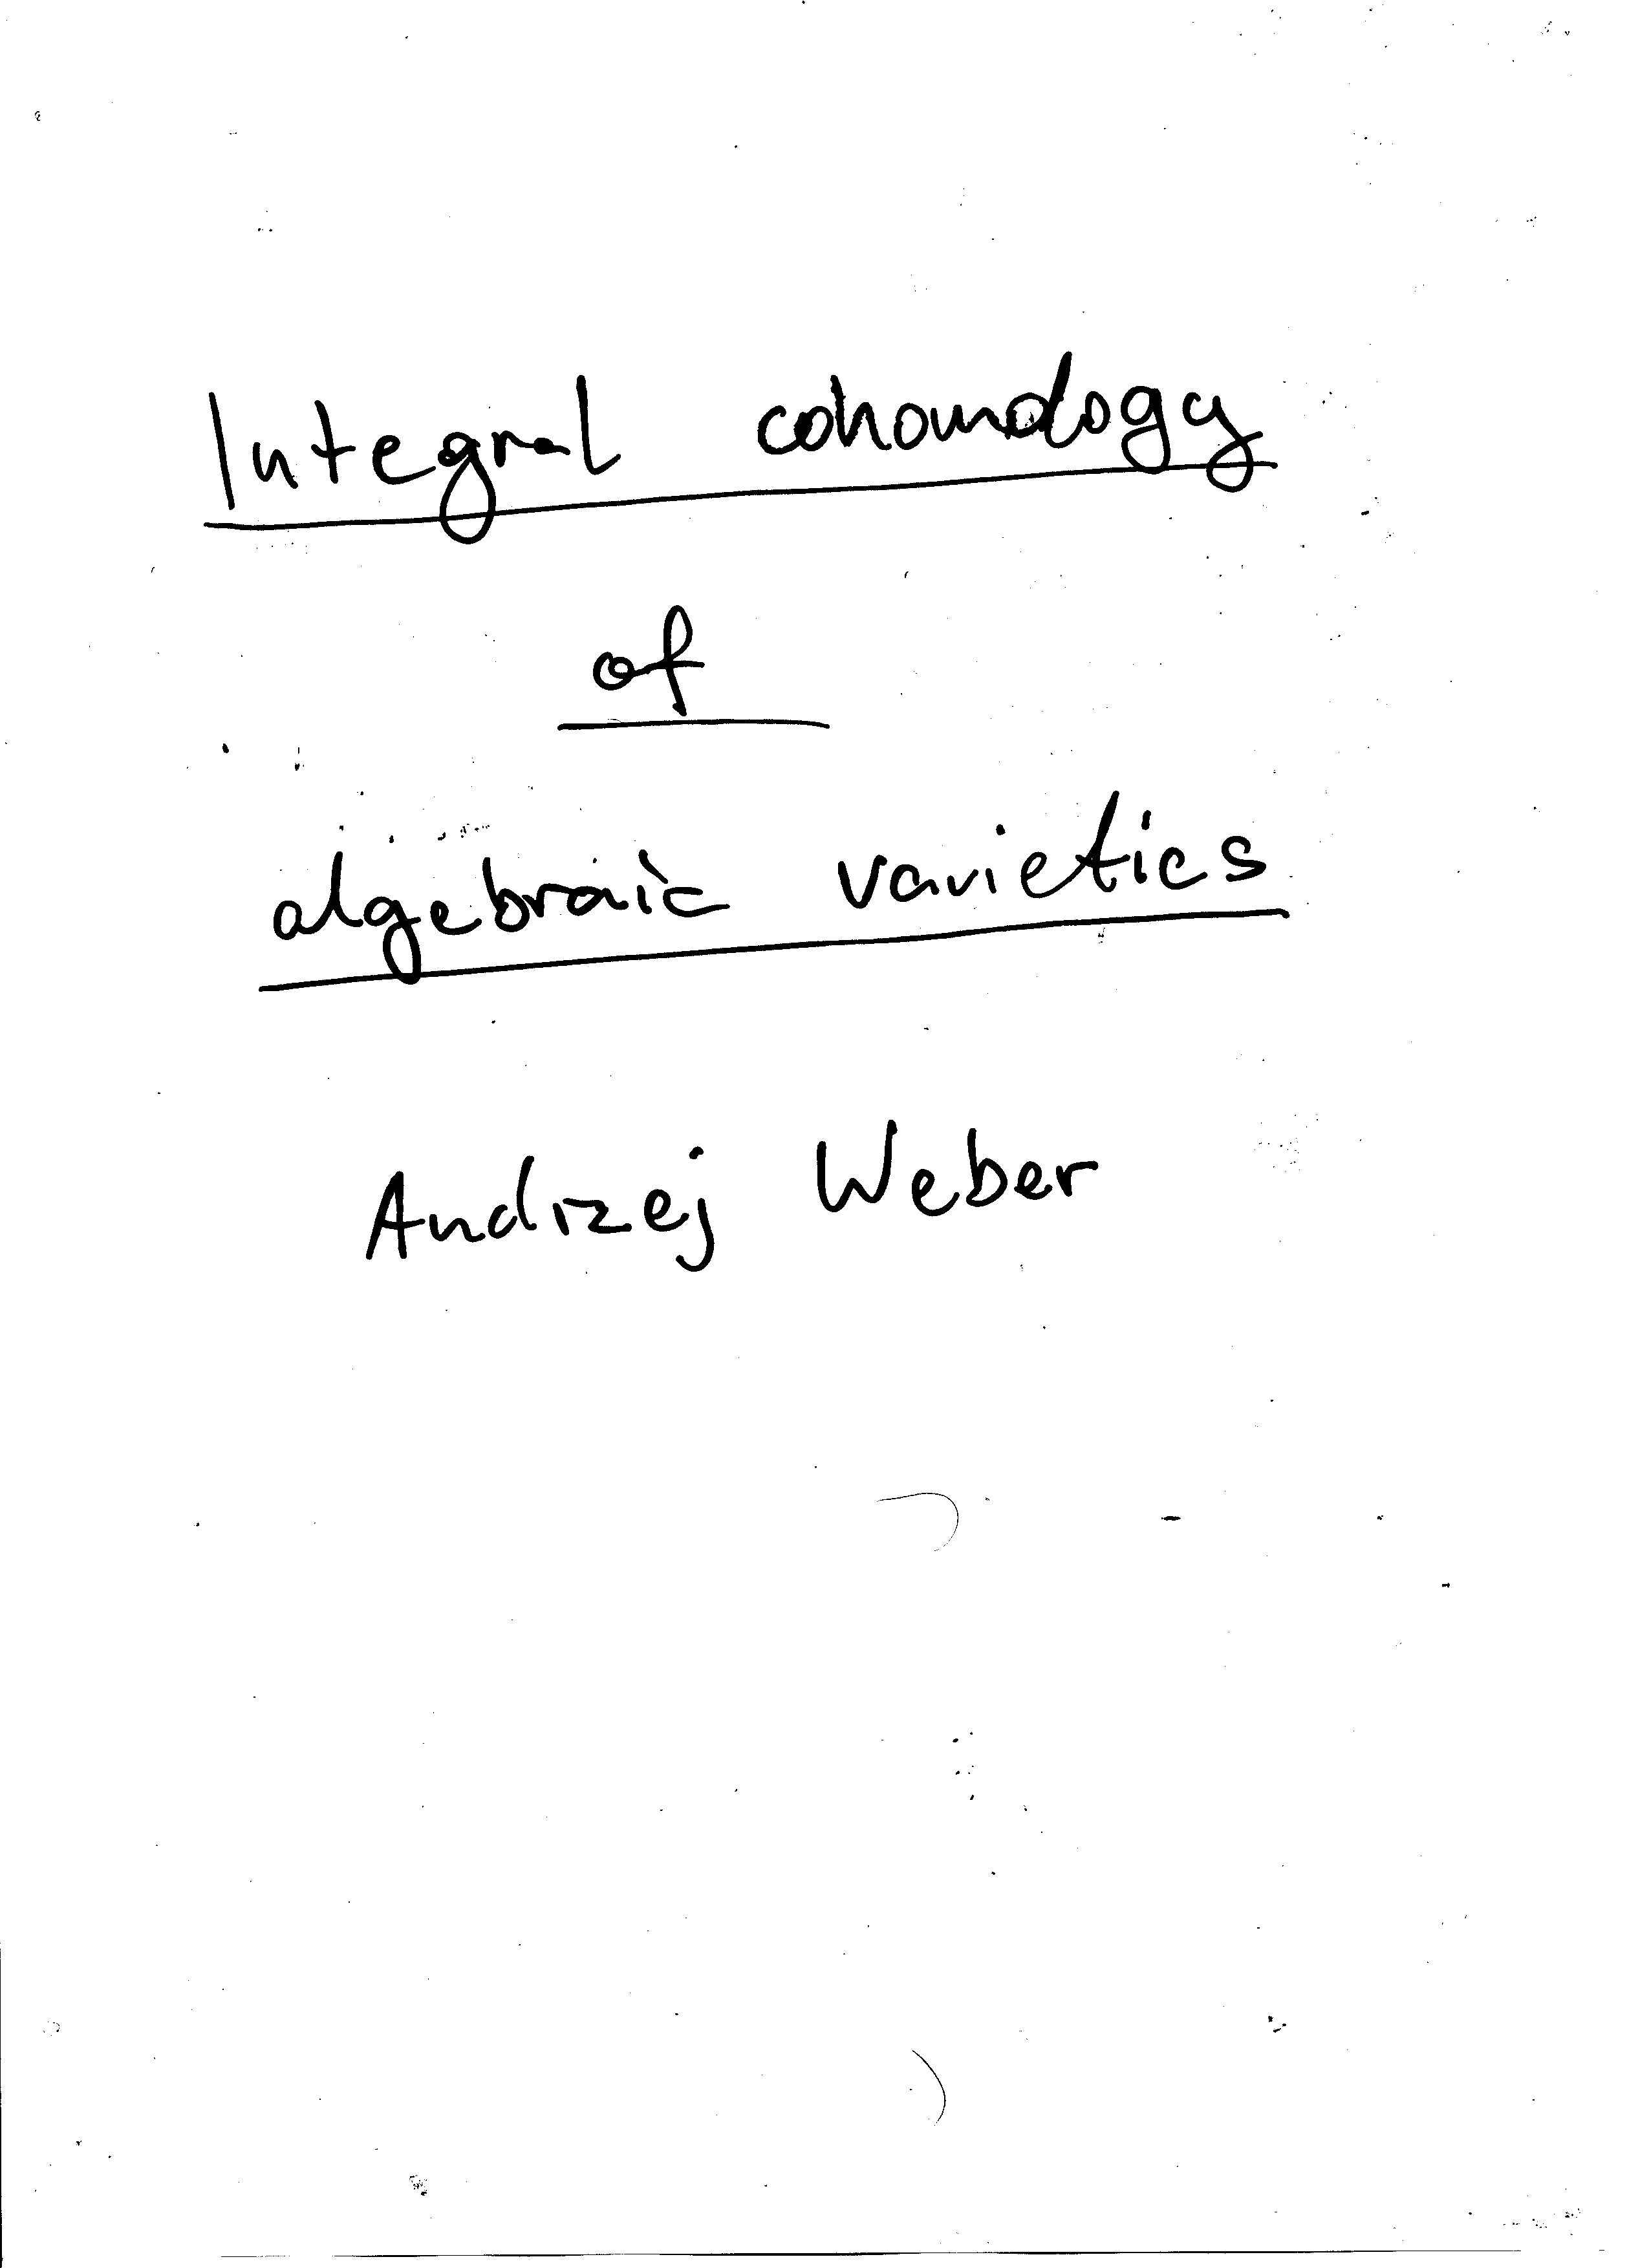 Integral cohomology
of
algebraic varieties
Andrzej Weber